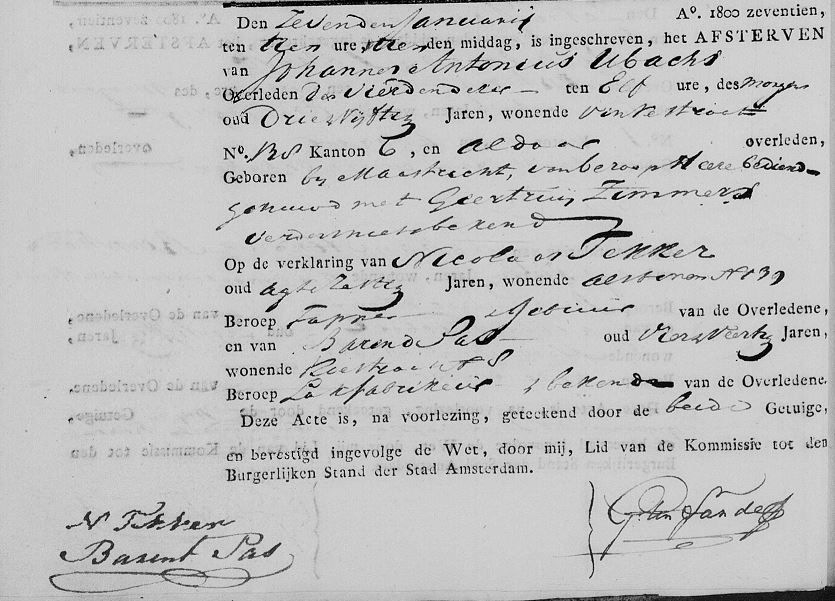 Den Zevenden Januarij Aº. 1800 zeventien,
ten tien ure, des middag, is ingeschreven, het AFSTERVEN
van Johannes Antonius Ubachs
Overleden den vierden dezer ten Elf ure, des morgens
oud Drie & Vyftig Jaren, wonende Vinkestraat
Nº. 138 Kanton 6, en aldaar overleden,
Geboren by Maastricht, van beroep Heere bediende
gehuwd met Geertruij Zimmers
verder niets bekend
Op de verklaring van Nicolaas Tekker
oud agt & Zestig Jaren, wonende als boven Nº 139
Beroep Tapper Gebuur van de Overledene,
en van Barend Pas oud Vier & Veertig Jaren,
wonende Nº 8
Beroep Lakfabrikeur bekende van de Overledene.
Deze Acte is, na voorlezing, geteekend door de beide Getuige,
en bevestigd ingevolge de Wet, door mij, Lid van de Kommissie tot den
Burgerlijken Stand der Stad Amsterdam.
N Tekker
Barent Pas